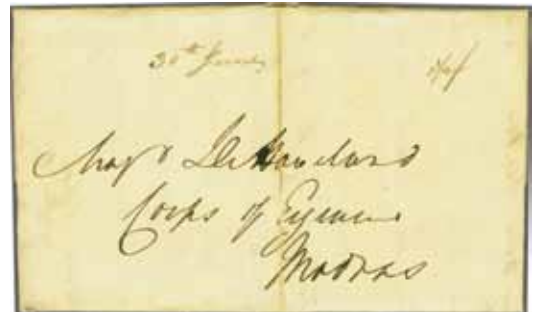 30th June
Majr De Haviland
Corps of Engineers
Madras